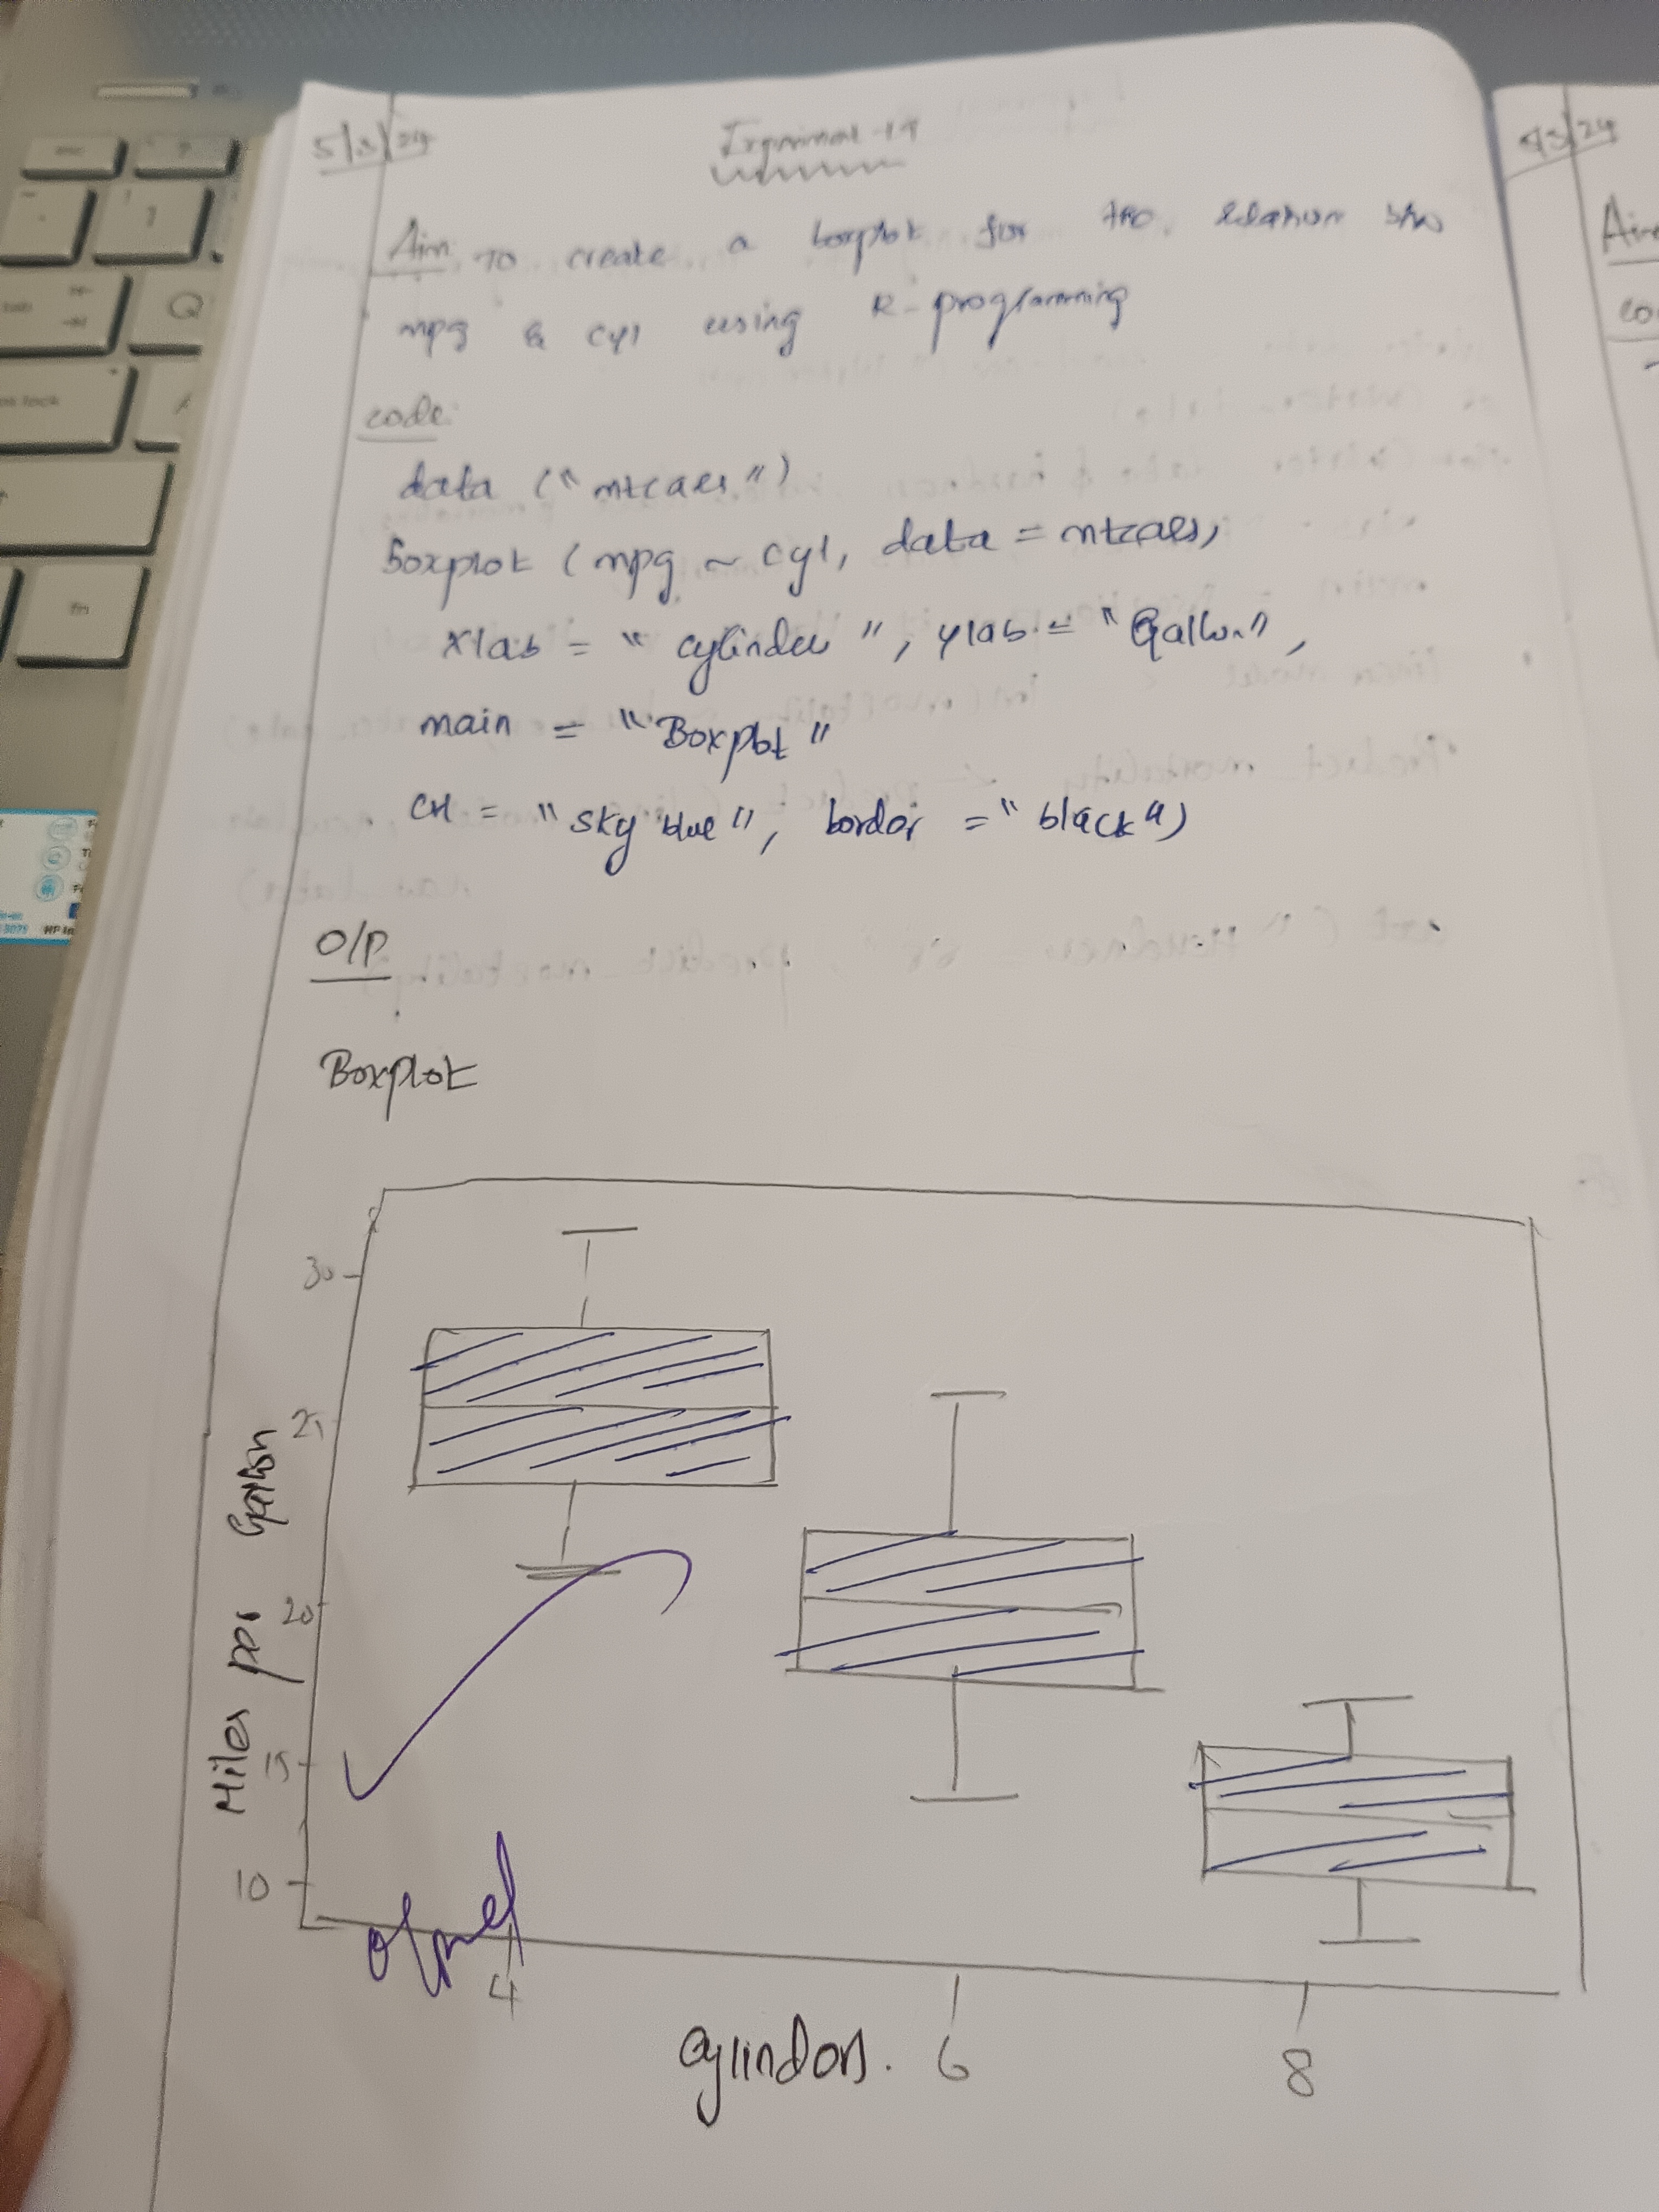 5/3/24
Aim TO create a boxplot for the relation b/w
mpg & cyl using R-programming
code:
data ("mtcars")
boxplot (mpg ~ cyl, data = mtcars,
xlab = "cylinder", ylab = "Gallon",
main = "Boxplot"
col = "sky blue", border = "black")
O/P
Boxplot
30
25
20
15
10
Miles per Gallon
4
6
8
cylinders.
5/3/24
Aim
co
esc
Q
fn